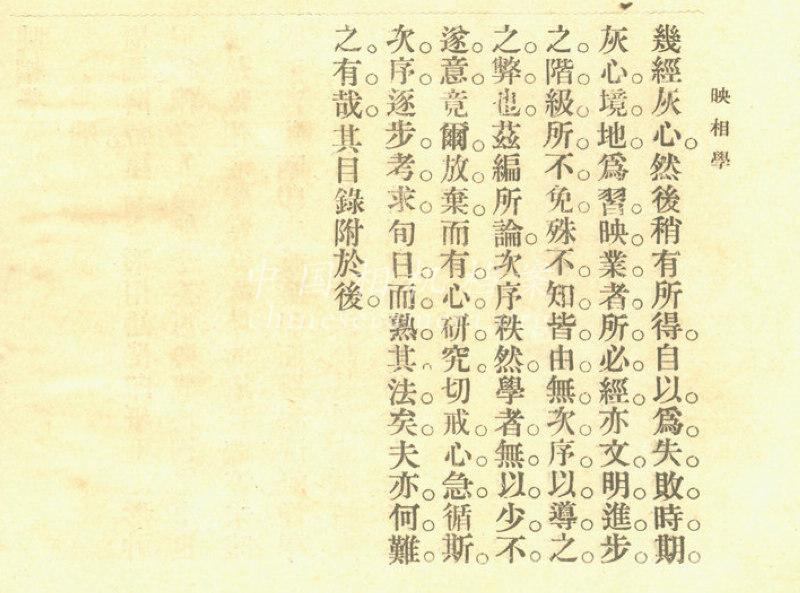 映相學
幾經灰心。然後稍有所得。自以爲失敗時期。
灰心境地。爲習映業者所必經。亦文明進步。
之階級所不免。殊不知皆由無次序以導之。
之弊也。茲編所論。次序秩然。學者無以少不。
遂意竟爾放棄。而有心研究。切戒心急。循斯。
次序逐步考求。旬日而熟其法矣。夫亦何難。
之有哉。其目錄附於後。